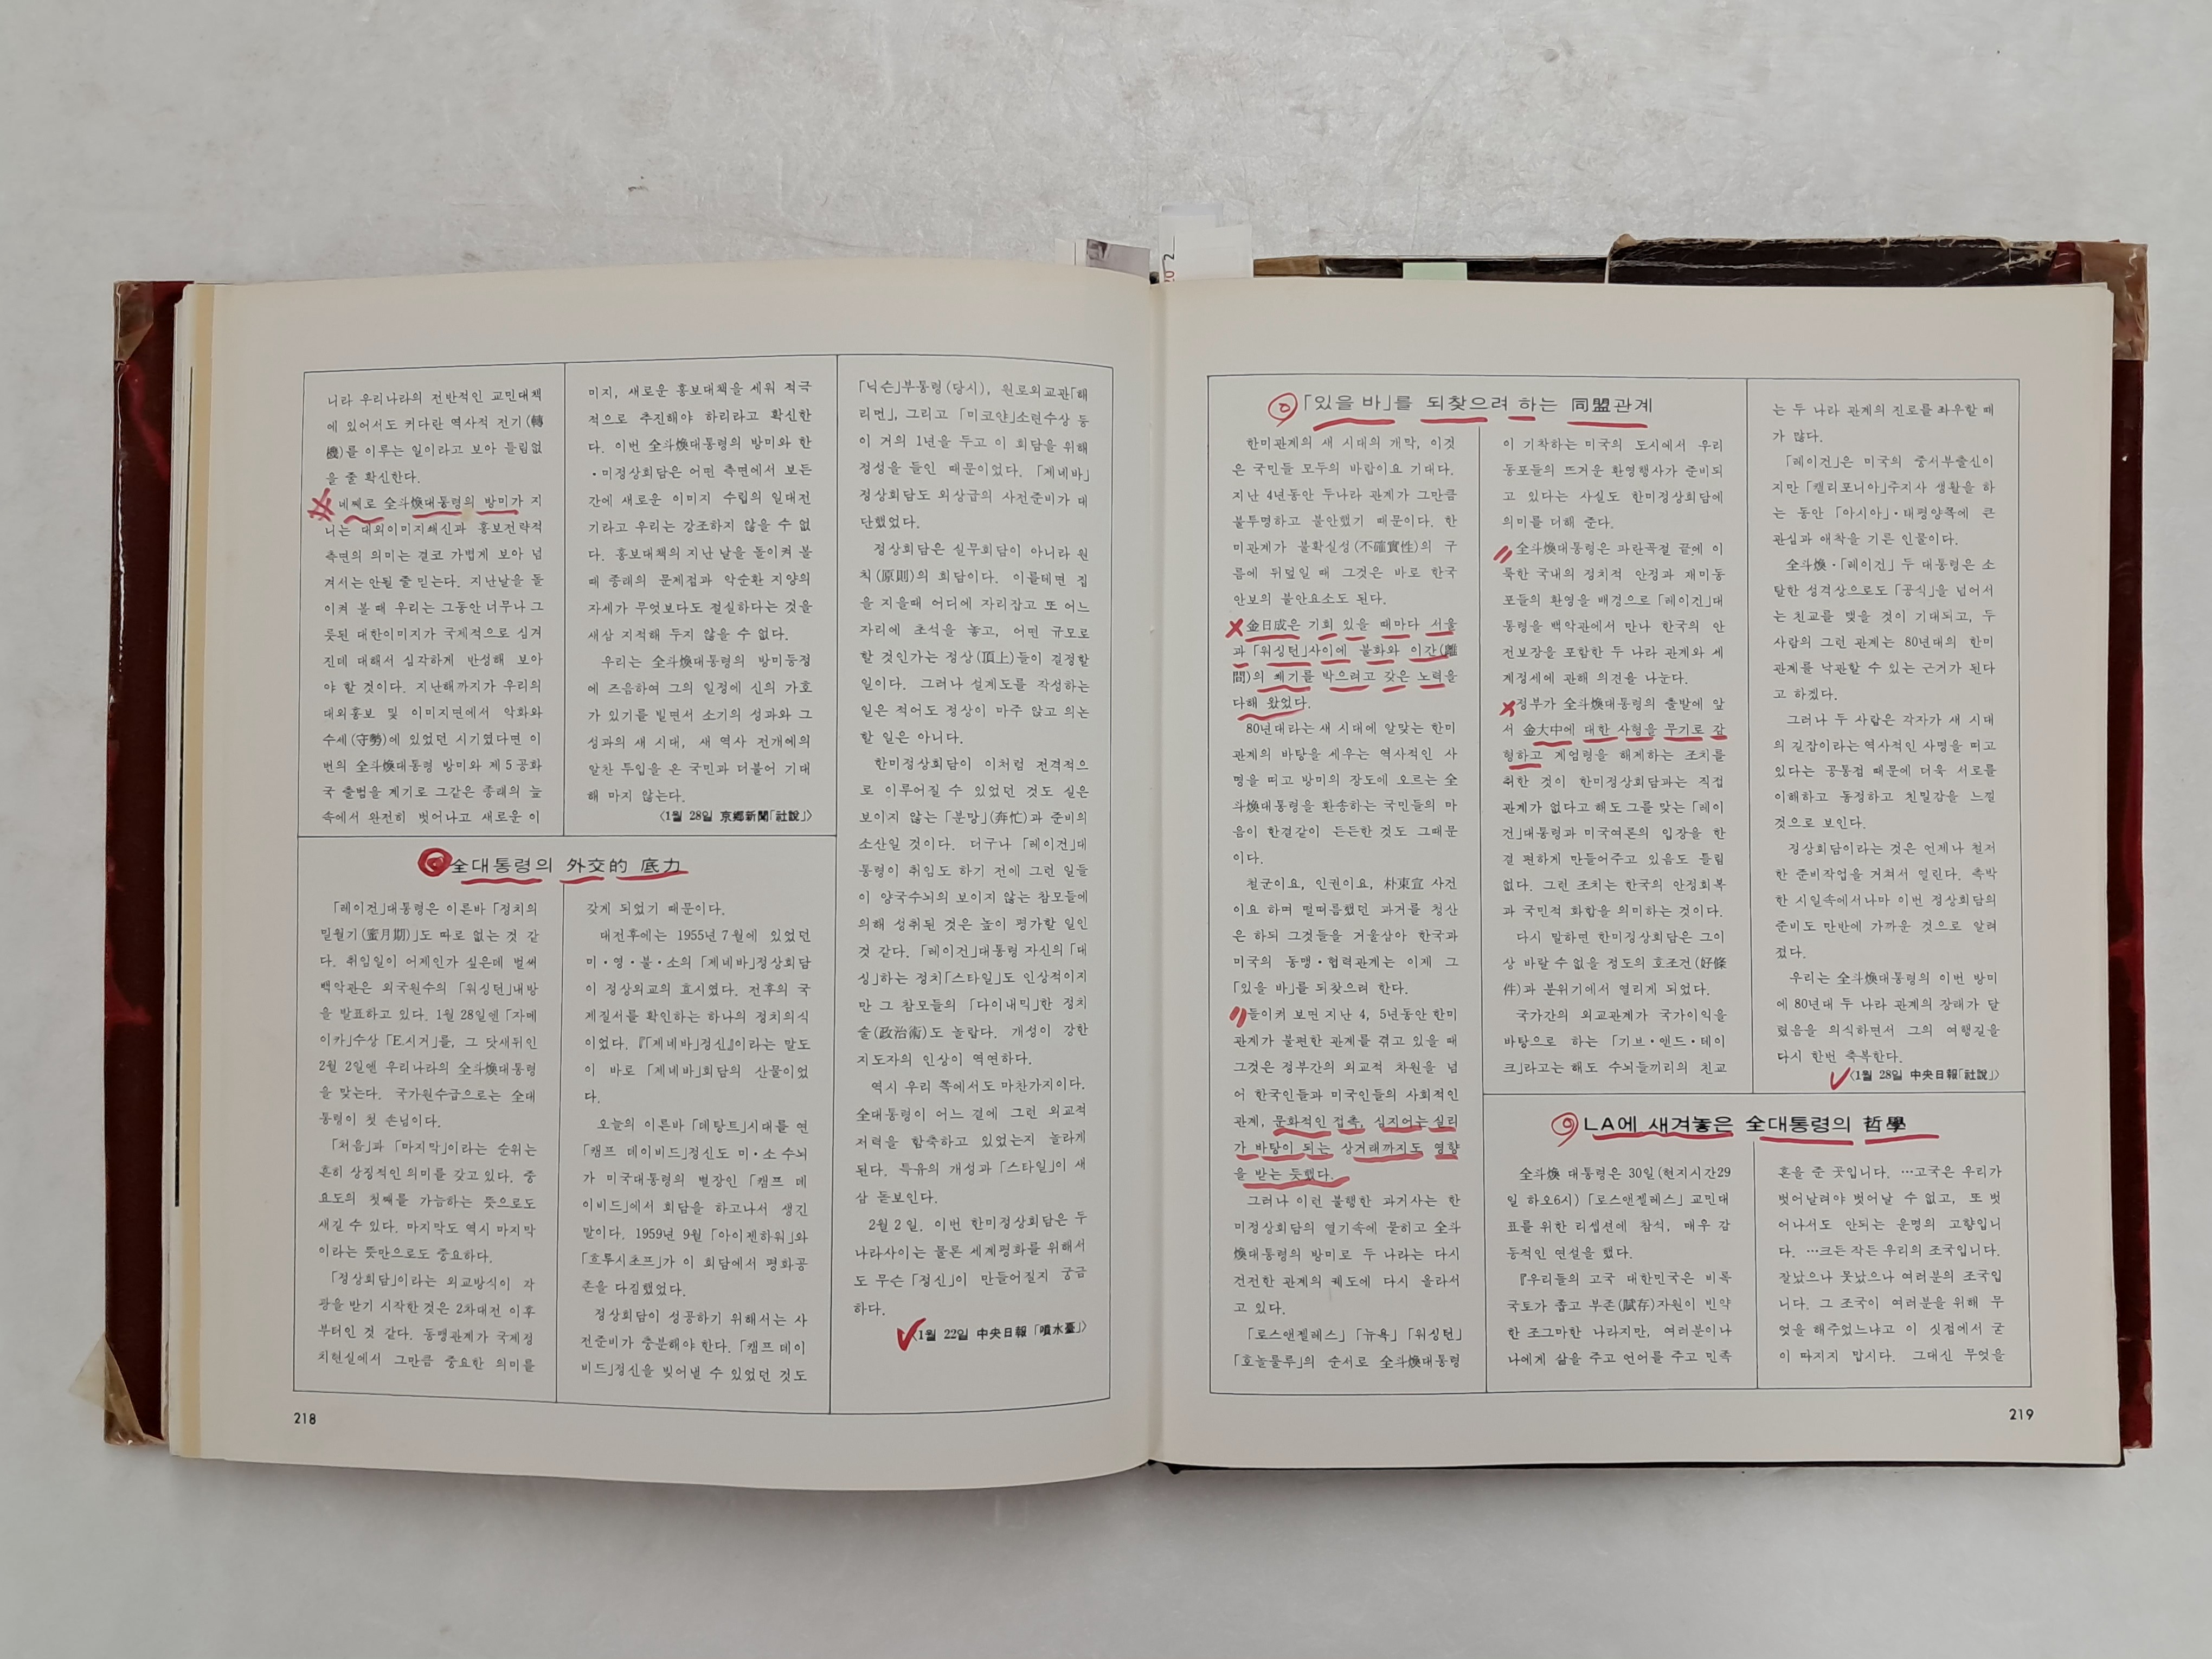 니라 우리나라의 전반적인 교민대책
에 있어서도 커다란 역사적 전기(轉
機)를 이루는 일이라고 보아 틀림없
을 줄 확신한다.
네째로 全斗煥대통령의 방미가 지
니는 대외이미지쇄신과 홍보전략적
측면의 의미는 결코 가볍게 보아 넘
겨서는 안될 줄 믿는다. 지난날을 돌
이켜 볼 때 우리는 그동안 너무나 그
릇된 대한이미지가 국제적으로 심겨
진데 대해서 심각하게 반성해 보아
야 할 것이다. 지난해까지가 우리의
대외홍보 및 이미지면에서 악화와
수세(守勢)에 있었던 시기였다면 이
번의 全斗煥대통령 방미와 제5공화
국 출범을 계기로 그같은 종래의 늪
속에서 완전히 벗어나고 새로운 이
미지, 새로운 홍보대책을 세워 적극
적으로 추진해야 하리라고 확신한
다. 이번 全斗煥대통령의 방미와 한
·미정상회담은 어떤 측면에서 보든
간에 새로운 이미지 수립의 일대전
기라고 우리는 강조하지 않을 수 없
다. 홍보대책의 지난 날을 돌이켜 볼
때 종래의 문제점과 악순환 지양의
자세가 무엇보다도 절실하다는 것을
새삼 지적해 두지 않을 수 없다.
우리는 全斗煥대통령의 방미등정
에 즈음하여 그의 일정에 신의 가호
가 있기를 빌면서 소기의 성과와 그
성과의 새 시대, 새 역사 전개에의
알찬 투입을 온 국민과 더불어 기대
해 마지 않는다.
〈1월 28일 京鄕新聞「社說」〉
全대통령의 外交的 底力
「레이건」대통령은 이른바「정치의
밀월기(蜜月期)」도 따로 없는 것 같
다. 취임일이 어제인가 싶은데 벌써
백악관은 외국원수의 「워싱턴」내방
을 발표하고 있다. 1월 28일엔「자메
이카」수상「E.시거」를, 그 닷새뒤인
2월 2일엔 우리나라의 全斗煥대통령
을 맞는다. 국가원수급으로는 全대
통령이 첫 손님이다.
「처음」과「마지막」이라는 순위는
흔히 상징적인 의미를 갖고 있다. 중
요도의 첫째를 가늠하는 뜻으로도
새길 수 있다. 마지막도 역시 마지막
이라는 뜻만으로도 중요하다.
「정상회담」이라는 외교방식이 각
광을 받기 시작한 것은 2차대전 이후
부터인 것 같다. 동맹관계가 국제정
치현실에서 그만큼 중요한 의미를
갖게 되었기 때문이다.
대전후에는 1955년 7월에 있었던
미·영·불·소의「제네바」정상회담
이 정상외교의 효시였다. 전후의 국
제질서를 확인하는 하나의 정치의식
이었다. 『「제네바」정신』이라는 말도
이 바로 「제네바」회담의 산물이었
다.
오늘의 이른바「데탕트」시대를 연
「캠프 데이비드」정신도 미·소 수뇌
가 미국대통령의 별장인 「캠프 데
이비드」에서 회담을 하고나서 생긴
말이다. 1959년 9월「아이젠하워」와
「흐루시초프」가 이 회담에서 평화공
존을 다짐했었다.
정상회담이 성공하기 위해서는 사
전준비가 충분해야 한다. 「캠프 데이
비드」정신을 빚어낼 수 있었던 것도
「닉슨」부통령(당시), 원로외교관「해
리먼」, 그리고 「미코얀」소련수상 등
이 거의 1년을 두고 이 회담을 위해
정성을 들인 때문이었다. 「제네바」
정상회담도 외상급의 사전준비가 대
단했었다.
정상회담은 실무회담이 아니라 원
칙(原則)의 회담이다. 이를테면 집
을 지을때 어디에 자리잡고 또 어느
자리에 초석을 놓고, 어떤 규모로
할 것인가는 정상(頂上)들이 결정할
일이다. 그러나 설계도를 작성하는
일은 적어도 정상이 마주 앉고 의논
할 일은 아니다.
한미정상회담이 이처럼 전격적으
로 이루어질 수 있었던 것도 실은
보이지 않는 「분망」(奔忙)과 준비의
소산일 것이다. 더구나 「레이건」대
통령이 취임도 하기 전에 그런 일들
이 양국수뇌의 보이지 않는 참모들에
의해 성취된 것은 높이 평가할 일인
것 같다. 「레이건」대통령 자신의「대
싱」하는 정치「스타일」도 인상적이지
만 그 참모들의 「다이내믹」한 정치
술(政治術)도 놀랍다. 개성이 강한
지도자의 인상이 역연하다.
역시 우리 쪽에서도 마찬가지이다.
全대통령이 어느 결에 그런 외교적
저력을 함축하고 있었는지 놀라게
된다. 특유의 개성과「스타일」이 새
삼 돋보인다.
2월 2일, 이번 한미정상회담은 두
나라사이는 물론 세계평화를 위해서
도 무슨 「정신」이 만들어질지 궁금
하다.
〈1월 22일 中央日報「噴水臺」〉
218
「있을 바」를 되찾으려 하는 同盟관계
한미관계의 새 시대의 개막, 이것
은 국민들 모두의 바람이요 기대다.
지난 4년동안 두나라 관계가 그만큼
불투명하고 불안했기 때문이다. 한
미관계가 불확실성(不確實性)의 구
름에 뒤덮일 때 그것은 바로 한국
안보의 불안요소도 된다.
金日成은 기회 있을 때마다 서울
과「워싱턴」사이에 불화와 이간(離
間)의 쐐기를 박으려고 갖은 노력을
다해 왔었다.
80년대라는 새 시대에 알맞는 한미
관계의 바탕을 세우는 역사적인 사
명을 띠고 방미의 장도에 오르는 全
斗煥대통령을 환송하는 국민들의 마
음이 한결같이 든든한 것도 그때문
이다.
철군이요, 인권이요, 朴東宣 사건
이요 하며 떨떠름했던 과거를 청산
은 하되 그것들을 거울삼아 한국과
미국의 동맹·협력관계는 이제 그
「있을 바」를 되찾으려 한다.
돌이켜 보면 지난 4, 5년동안 한미
관계가 불편한 관계를 겪고 있을 때
그것은 정부간의 외교적 차원을 넘
어 한국인들과 미국인들의 사회적인
관계, 문화적인 접촉, 심지어는 실리
가 바탕이 되는 상거래까지도 영향
을 받는 듯했다.
그러나 이런 불행한 과거사는 한
미정상회담의 열기속에 묻히고 全斗
煥대통령의 방미로 두 나라는 다시
건전한 관계의 궤도에 다시 올라서
고 있다.
「로스앤젤레스」「뉴욕」「워싱턴」
「호놀룰루」의 순서로 全斗煥대통령
이 기착하는 미국의 도시에서 우리
동포들의 뜨거운 환영행사가 준비되
고 있다는 사실도 한미정상회담에
의미를 더해 준다.
全斗煥대통령은 파란곡절 끝에 이
룩한 국내의 정치적 안정과 재미동
포들의 환영을 배경으로「레이건」대
통령을 백악관에서 만나 한국의 안
전보장을 포함한 두 나라 관계와 세
계정세에 관해 의견을 나눈다.
정부가 全斗煥대통령의 출발에 앞
서 金大中에 대한 사형을 무기로 감
형하고 계엄령을 해제하는 조치를
취한 것이 한미정상회담과는 직접
관계가 없다고 해도 그를 맞는「레이
건」대통령과 미국여론의 입장을 한
결 편하게 만들어주고 있음도 틀림
없다. 그런 조치는 한국의 안정회복
과 국민적 화합을 의미하는 것이다.
다시 말하면 한미정상회담은 그이
상 바랄 수 없을 정도의 호조건(好條
件)과 분위기에서 열리게 되었다.
국가간의 외교관계가 국가이익을
바탕으로 하는 「기브·앤드·테이
크」라고는 해도 수뇌들끼리의 친교
는 두 나라 관계의 진로를 좌우할 때
가 많다.
「레이건」은 미국의 중서부출신이
지만「캘리포니아」주지사 생활을 하
는 동안 「아시아」·태평양쪽에 큰
관심과 애착을 기른 인물이다.
全斗煥·「레이건」두 대통령은 소
탈한 성격상으로도「공식」을 넘어서
는 친교를 맺을 것이 기대되고, 두
사람의 그런 관계는 80년대의 한미
관계를 낙관할 수 있는 근거가 된다
고 하겠다.
그러나 두 사람은 각자가 새 시대
의 길잡이라는 역사적인 사명을 띠고
있다는 공통점 때문에 더욱 서로를
이해하고 동정하고 친밀감을 느낄
것으로 보인다.
정상회담이라는 것은 언제나 철저
한 준비작업을 거쳐서 열린다. 촉박
한 시일속에서나마 이번 정상회담의
준비도 만반에 가까운 것으로 알려
졌다.
우리는 全斗煥대통령의 이번 방미
에 80년대 두 나라 관계의 장래가 달
렸음을 의식하면서 그의 여행길을
다시 한번 축복한다.
〈1월 28일 中央日報「社說」〉
LA에 새겨놓은 全대통령의 哲學
全斗煥 대통령은 30일(현지시간29
일 하오6시)「로스앤젤레스」교민대
표를 위한 리셉션에 참석, 매우 감
동적인 연설을 했다.
『우리들의 고국 대한민국은 비록
국토가 좁고 부존(賦存)자원이 빈약
한 조그마한 나라지만, 여러분이나
나에게 삶을 주고 언어를 주고 민족
혼을 준 곳입니다. …고국은 우리가
벗어날려야 벗어날 수 없고, 또 벗
어나서도 안되는 운명의 고향입니
다. …크든 작든 우리의 조국입니다.
잘났으나 못났으나 여러분의 조국입
니다. 그 조국이 여러분을 위해 무
엇을 해주었느냐고 이 싯점에서 굳
이 따지지 맙시다. 그대신 무엇을
219